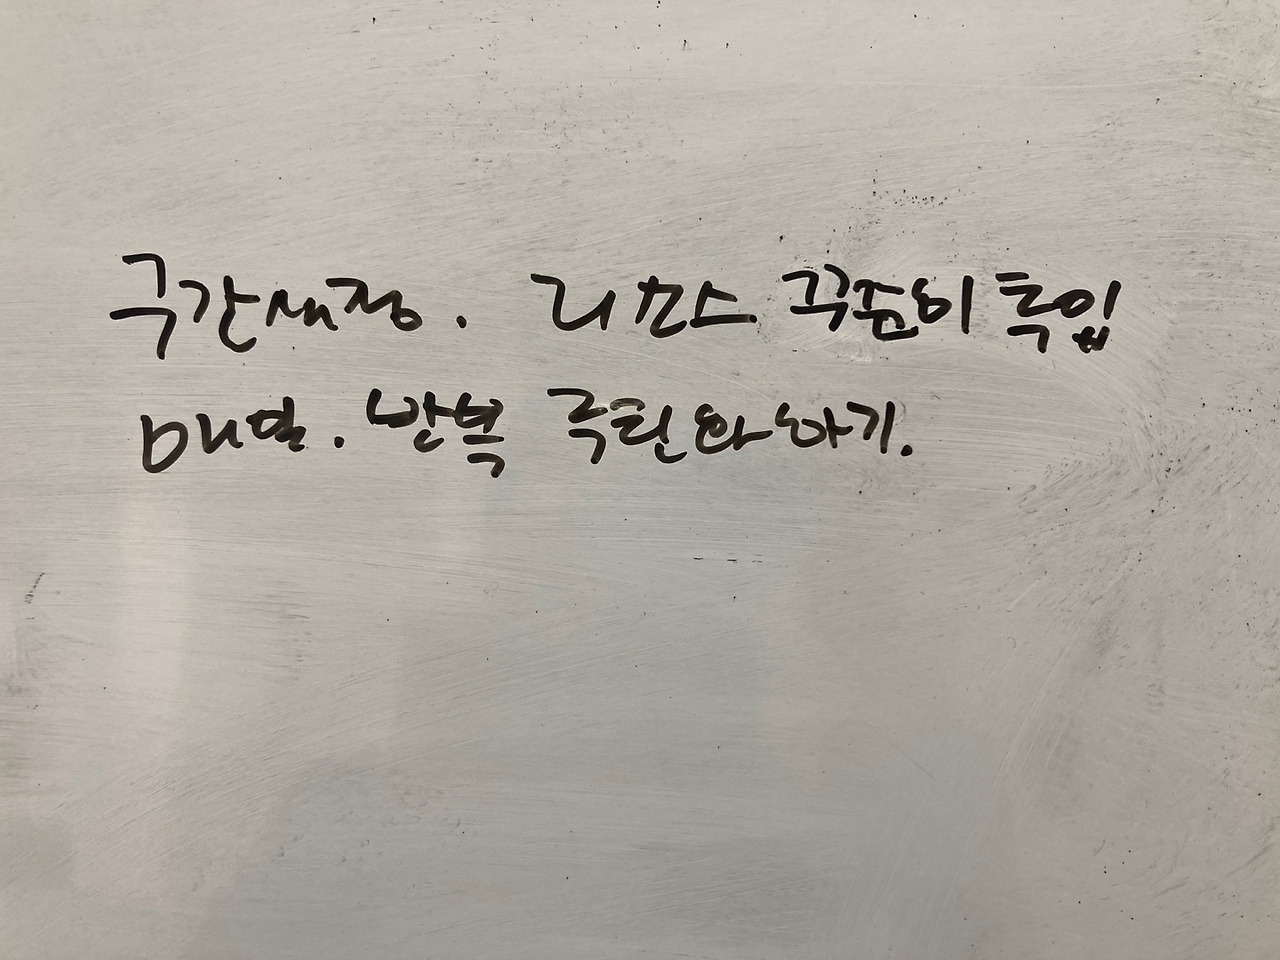 구간설정. 리소스 꾸준히 투입
매일. 반복 루틴화 하기.